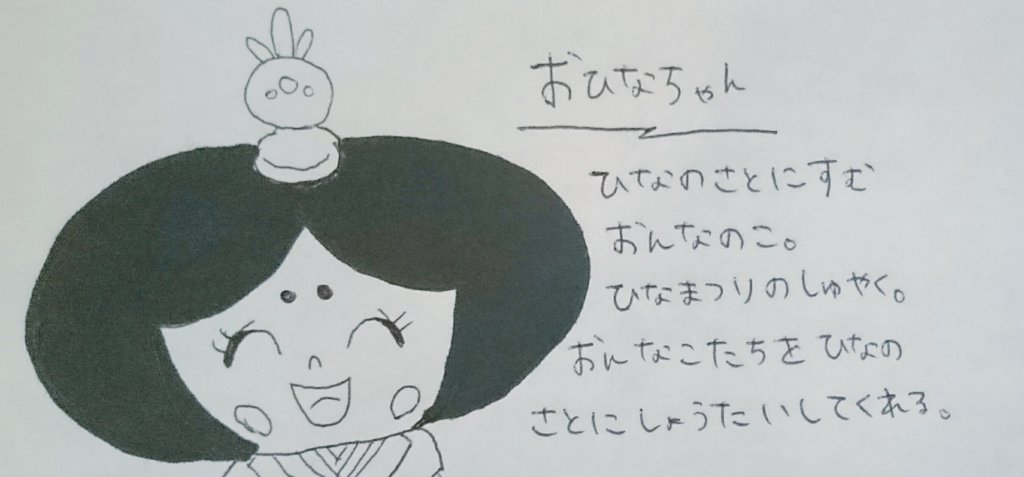 おひなちゃん
ひなのさとにすむ
おんなのこ。
ひなまつりのしゅやく。
おんなこたちをひなの
さとにしょうたいしてくれる。